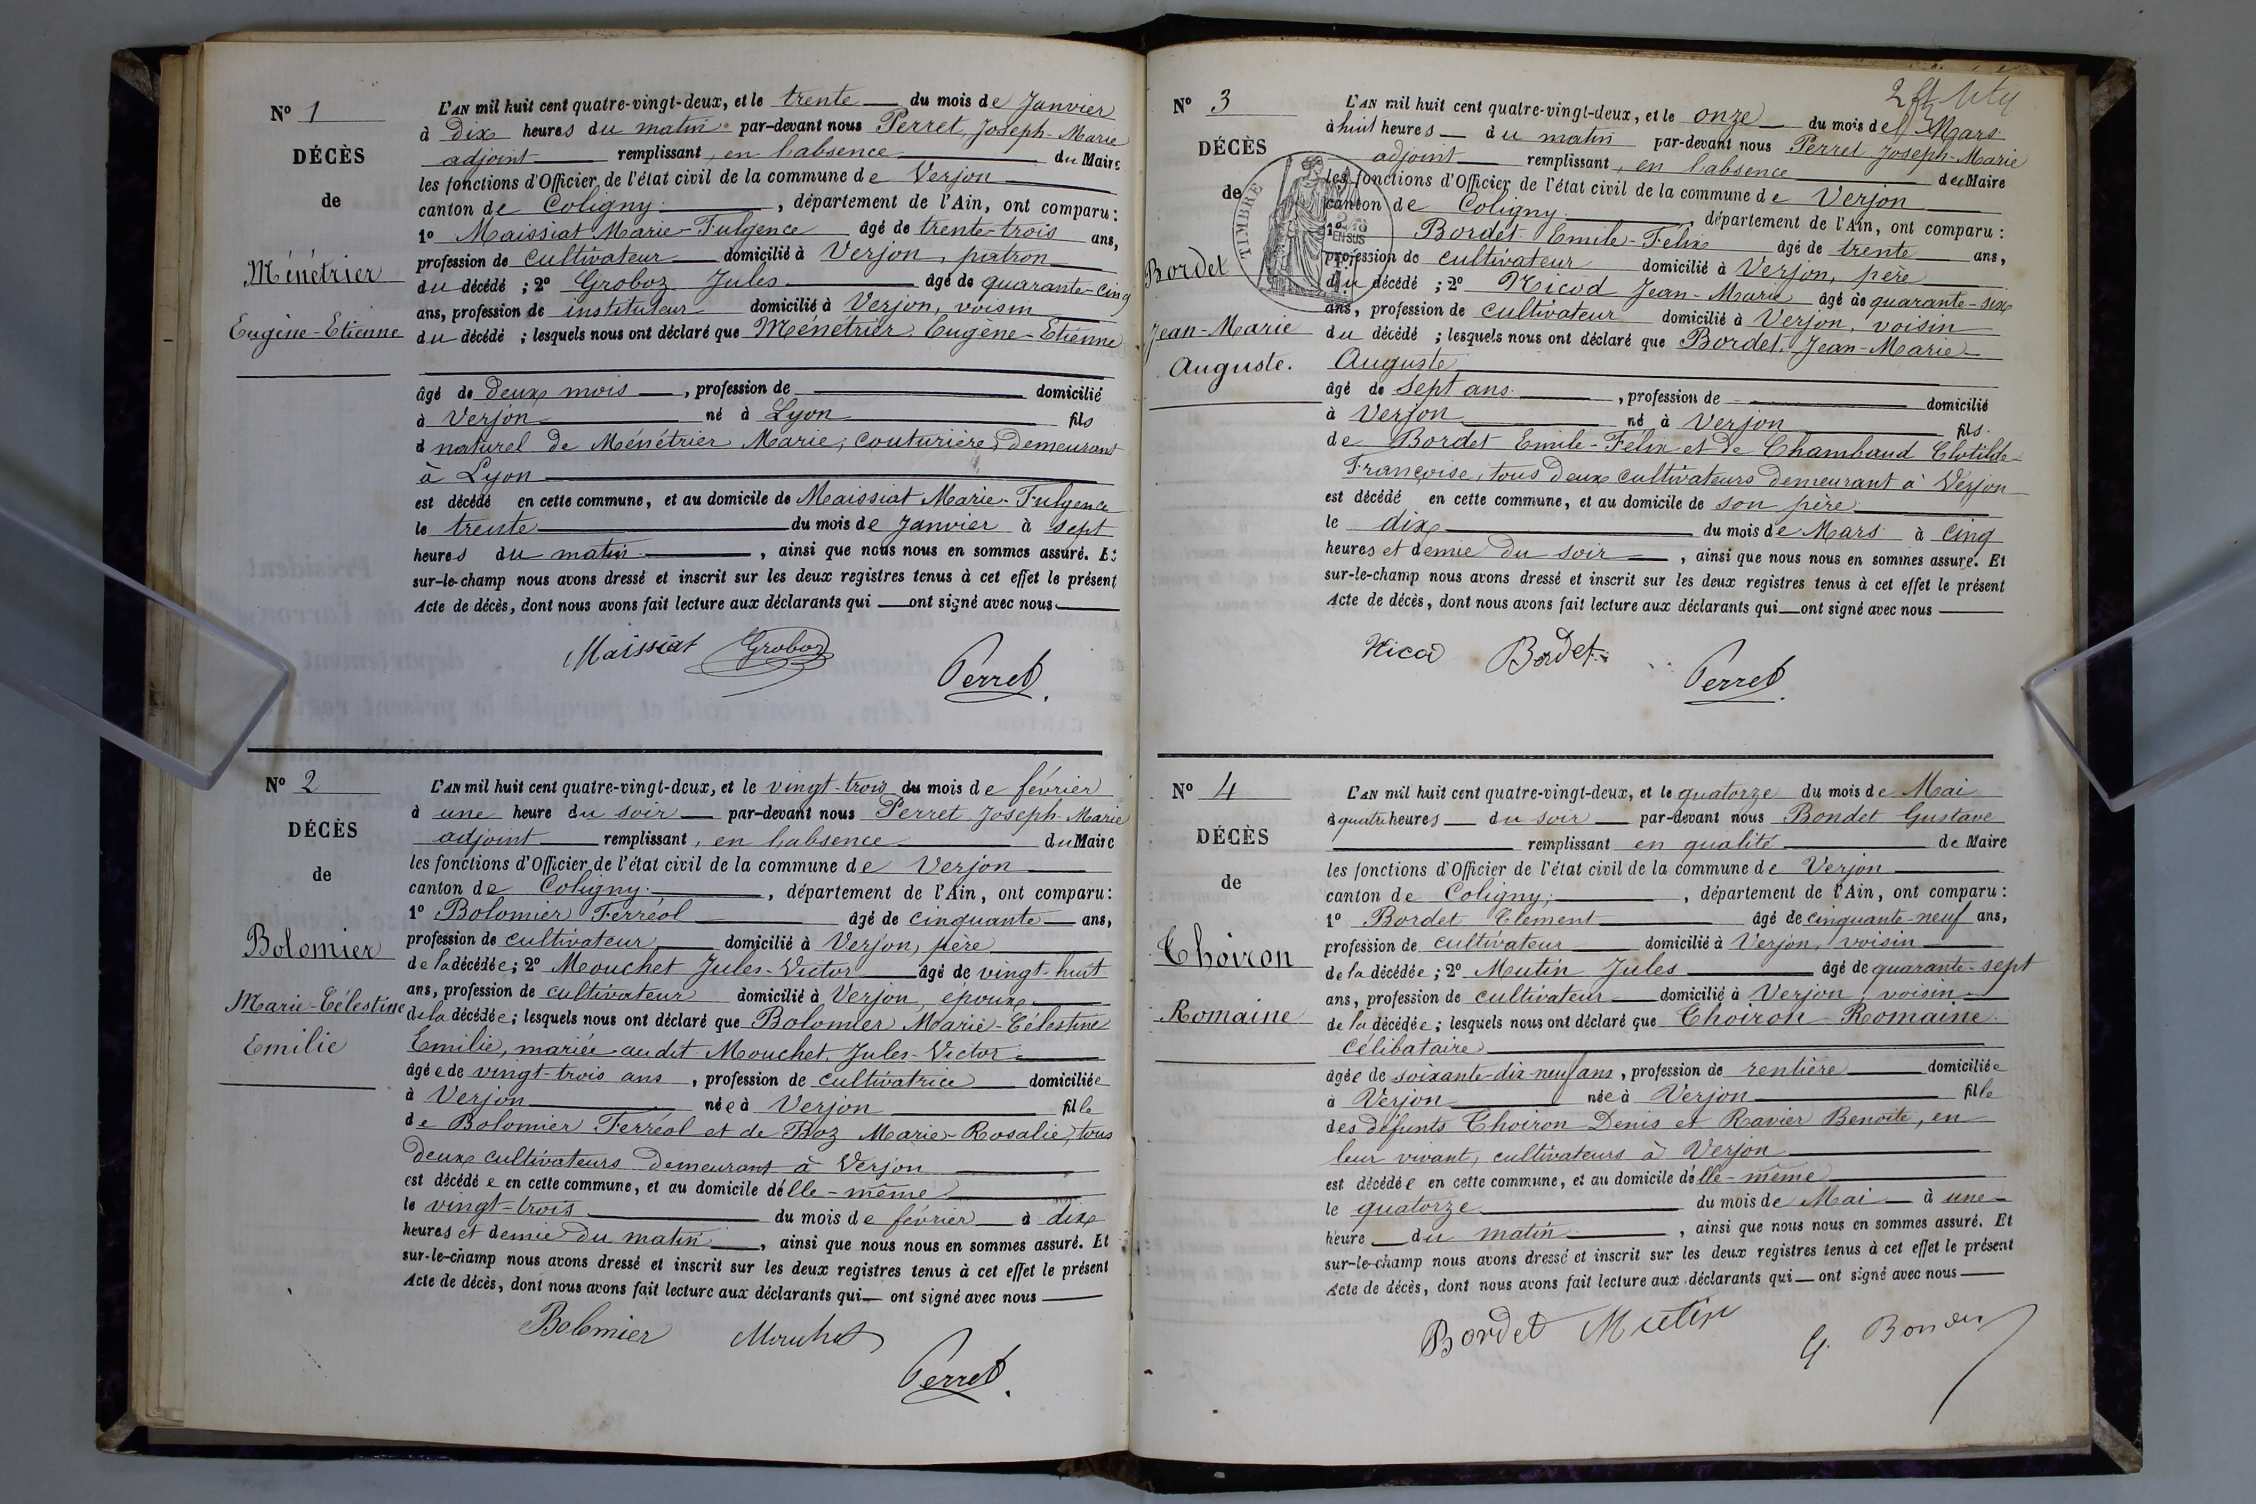 N° 1
DÉCÈS
de
Ménétrier
Eugène-Etienne
L'AN mil huit cent quatre-vingt-deux, et le trente du mois de Janvier
à dix heures du matin par-devant nous Perret, Joseph-Marie
adjoint remplissant, en l'absence du Maire
les fonctions d'Officier de l'état civil de la commune de Verjon
canton de Coligny, département de l'Ain, ont comparu :
1° Maissiat Marie-Fulgence âgé de trente-trois ans,
profession de cultivateur domicilié à Verjon, patron
du décédé ; 2° Groboz Jules âgé de quarante-cinq
ans, profession de instituteur domicilié à Verjon, voisin
du décédé ; lesquels nous ont déclaré que Ménétrier, Eugène-Etienne
âgé de deux mois, profession de domicilié
à Verjon né à Lyon fils
d naturel de Ménétrier Marie, couturière, demeurant
à Lyon
est décédé en cette commune, et au domicile de Maissiat Marie-Fulgence
le trente du mois de Janvier à sept
heures du matin, ainsi que nous nous en sommes assuré. Et
sur-le-champ nous avons dressé et inscrit sur les deux registres tenus à cet effet le présent
Acte de décès, dont nous avons fait lecture aux déclarants qui ont signé avec nous
Maissiat Groboz
Perret
N° 2
DÉCÈS
de
Bolomier
Marie-Célestine
Emilie
L'AN mil huit cent quatre-vingt-deux, et le vingt-trois du mois de février
à une heure du soir par-devant nous Perret Joseph-Marie
adjoint remplissant, en l'absence du Maire
les fonctions d'Officier de l'état civil de la commune de Verjon
canton de Coligny, département de l'Ain, ont comparu :
1° Bolomier Ferréol âgé de cinquante ans,
profession de cultivateur domicilié à Verjon, père
de la décédée ; 2° Mouchet Jules-Victor âgé de vingt-huit
ans, profession de cultivateur domicilié à Verjon, époux
de la décédée ; lesquels nous ont déclaré que Bolomier Marie-Célestine
Emilie, mariée audit Mouchet, Jules-Victor
âgée de vingt-trois ans, profession de cultivatrice domiciliée
à Verjon née à Verjon fille
de Bolomier Ferréol et de Boz Marie-Rosalie, tous
deux cultivateurs demeurant à Verjon
est décédée en cette commune, et au domicile d'elle-même
le vingt-trois du mois de février à dix
heures et demie du matin, ainsi que nous nous en sommes assuré. Et
sur-le-champ nous avons dressé et inscrit sur les deux registres tenus à cet effet le présent
Acte de décès, dont nous avons fait lecture aux déclarants qui ont signé avec nous
Bolomier Mouchet
Perret
N° 3
DÉCÈS
de
Bordet
Jean-Marie
Auguste.
TIMBRE
EN SUS
L'AN mil huit cent quatre-vingt-deux, et le onze du mois de Mars
à huit heures du matin par-devant nous Perret Joseph-Marie
adjoint remplissant, en l'absence du Maire
les fonctions d'Officier de l'état civil de la commune de Verjon
canton de Coligny, département de l'Ain, ont comparu :
1° Bordet Emile-Felix âgé de trente ans,
profession de cultivateur domicilié à Verjon, père
du décédé ; 2° Nicod Jean-Marie âgé de quarante-six
ans, profession de cultivateur domicilié à Verjon, voisin
du décédé ; lesquels nous ont déclaré que Bordet, Jean-Marie-
Auguste
âgé de sept ans, profession de domicilié
à Verjon né à Verjon fils
de Bordet Emile-Felix et de Chambaud Clotilde
Françoise, tous deux cultivateurs demeurant à Verjon
est décédé en cette commune, et au domicile de son père
le dix du mois de Mars à cinq
heures et demie du soir, ainsi que nous nous en sommes assuré. Et
sur-le-champ nous avons dressé et inscrit sur les deux registres tenus à cet effet le présent
Acte de décès, dont nous avons fait lecture aux déclarants qui ont signé avec nous
Nicod Bordet
Perret
N° 4
DÉCÈS
de
Choiron
Romaine
L'AN mil huit cent quatre-vingt-deux, et le quatorze du mois de Mai
à quatre heures du soir par-devant nous Bondet Gustave
remplissant en qualité de Maire
les fonctions d'Officier de l'état civil de la commune de Verjon
canton de Coligny, département de l'Ain, ont comparu :
1° Bordet Clément âgé de cinquante-neuf ans,
profession de cultivateur domicilié à Verjon, voisin
de la décédée ; 2° Mutin Jules âgé de quarante-sept
ans, profession de cultivateur domicilié à Verjon, voisin
de la décédée ; lesquels nous ont déclaré que Choiron Romaine
célibataire
âgée de soixante-dix-neuf ans, profession de rentière domiciliée
à Verjon née à Verjon fille
des défunts Choiron Denis et Ravier Benoite, en
leur vivant, cultivateurs à Verjon
est décédée en cette commune, et au domicile d'elle-même
le quatorze du mois de Mai à une
heure du matin, ainsi que nous nous en sommes assuré. Et
sur-le-champ nous avons dressé et inscrit sur les deux registres tenus à cet effet le présent
Acte de décès, dont nous avons fait lecture aux déclarants qui ont signé avec nous
Bordet Mutin
G. Bondet